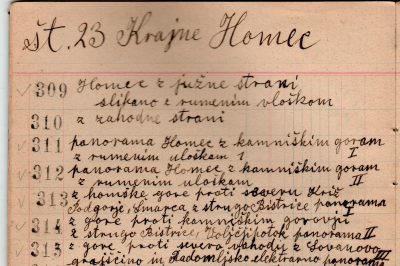 št. 23 Krajne Homec
309 Homec z južne strani
slikano z rumenim vloškom
310 z zahodne strani
311 panorama Homec z kamniškim goram
z rumenim uloškam 1 I
312 panorama Homec z kamniškim goram
z rumenim uloikam II
313 z homške gore proti severu Križ
Podgorje, Šmarca z strugo Bistrice panorama I
314 z gore proti kamniškim gorovji
z strugo Bistrice, Količjipotok panorama II
315 z gore proti severa vzhody z Lovanovo
in Radomljsko elektrarno panorama